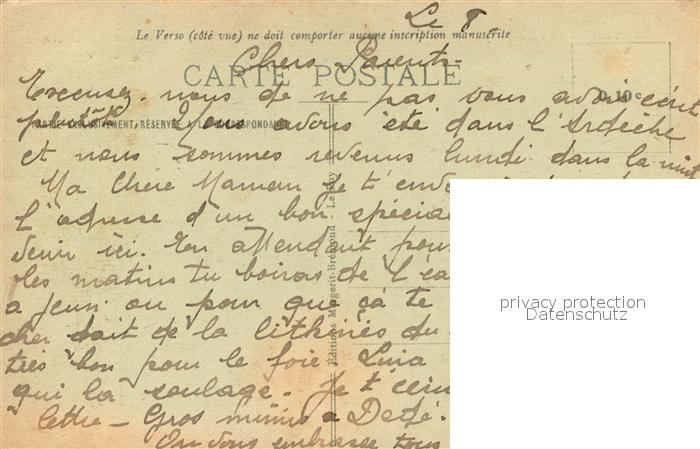 Le 8
Le Verso (côté vue) ne doit comporter aucune inscription manuscrite
Chers Parents-
CARTE POSTALE
0,10c
Excusez nous de ne pas vous avoir écrit
plus tôt. Nous avons été dans l'Ardèche
PARTIE EXCLUSIVEMENT RÉSERVÉE A LA CORRESPONDANCE
et nous sommes revenus lundi dans la nuit
Ma Chère Maman je t'envo
l'adresse d'un bon spécia
venir ici. En attendant pour
les matins tu boiras de l'ea
a jeun ou pour que ça te
cher soit de la lithinés du
très bon pour le foie. Luia
qui la soulage. Je t'écri
lettre - Gros mimis a Dédé.
On vous embrasse tous
Éditions Margerit-Brémond - Le Puy
privacy protection
Datenschutz